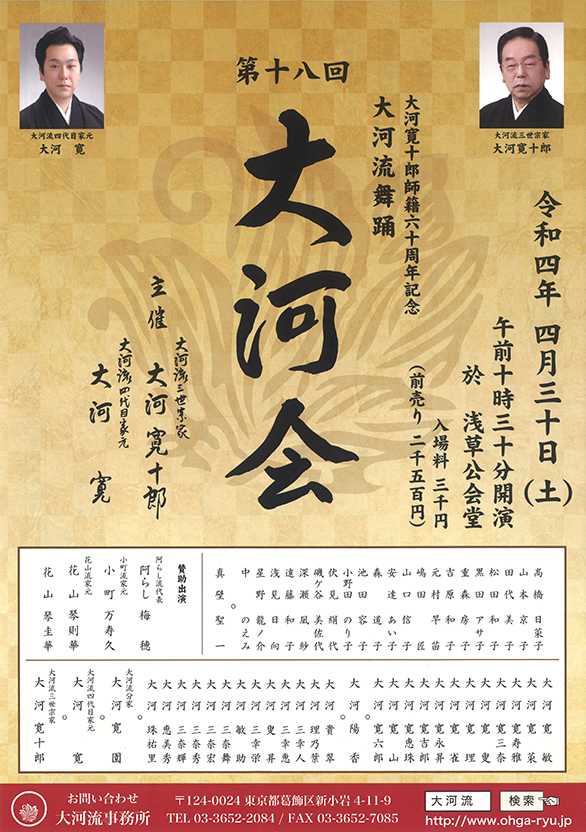 第十八回
大河流四代目家元
大河 寛
大河流三世宗家
大河寛十郎
令和四年 四月三十日(土)
午前十時三十分開演
於 浅草公会堂
入場料 三千円
(前売り 二千五百円)
大河寛十郎師籍六十周年記念
大河流舞踊
大河会
主催
大河流三世宗家
大河寛十郎
大河流四代目家元
大河 寛
高橋日菜子
山本京子
田代美子
松田和子
黒田アサ子
重森房子
吉原和子
元村早苗
嶋田匠
山口信子
安達あい子
森道子
池田容子
小野田のり子
伏見絹代
磯ケ谷美佐代
深瀬凰紗
遠藤和子
浅見日向
星野龍ノ介
中のえみ
真壁聖一
賛助出演
阿らし流代表
阿らし梅穂
小町流家元
小町万寿久
花山流家元
花山琴則華
花山琴圭華
大河寛敏
大河寛菜
大河寛寿雅
大河寛三奈
大河寛叟
大河寛理
大河寛雀
大河寛永昇
大河寛吉郎
大河寛恵珠
大河寛山
大河寛六郎
大河陽香
大河貴翠
大河理乃葉
大河三幸人
大河三幸恵
大河叟昇
大河三幸栄
大河敏助
大河三奈舞
大河三奈宏
大河三奈秀
大河三奈輝
大河恵美秀
大河珠祐里
大河流分家
大河寛園
大河流四代目家元
大河寛
大河流三世宗家
大河寛十郎
お問い合わせ
大河流事務所
〒124-0024 東京都葛飾区新小岩 4-11-9
TEL 03-3652-2084 / FAX 03-3685-7085
大河流 検索
http://www.ohga-ryu.com